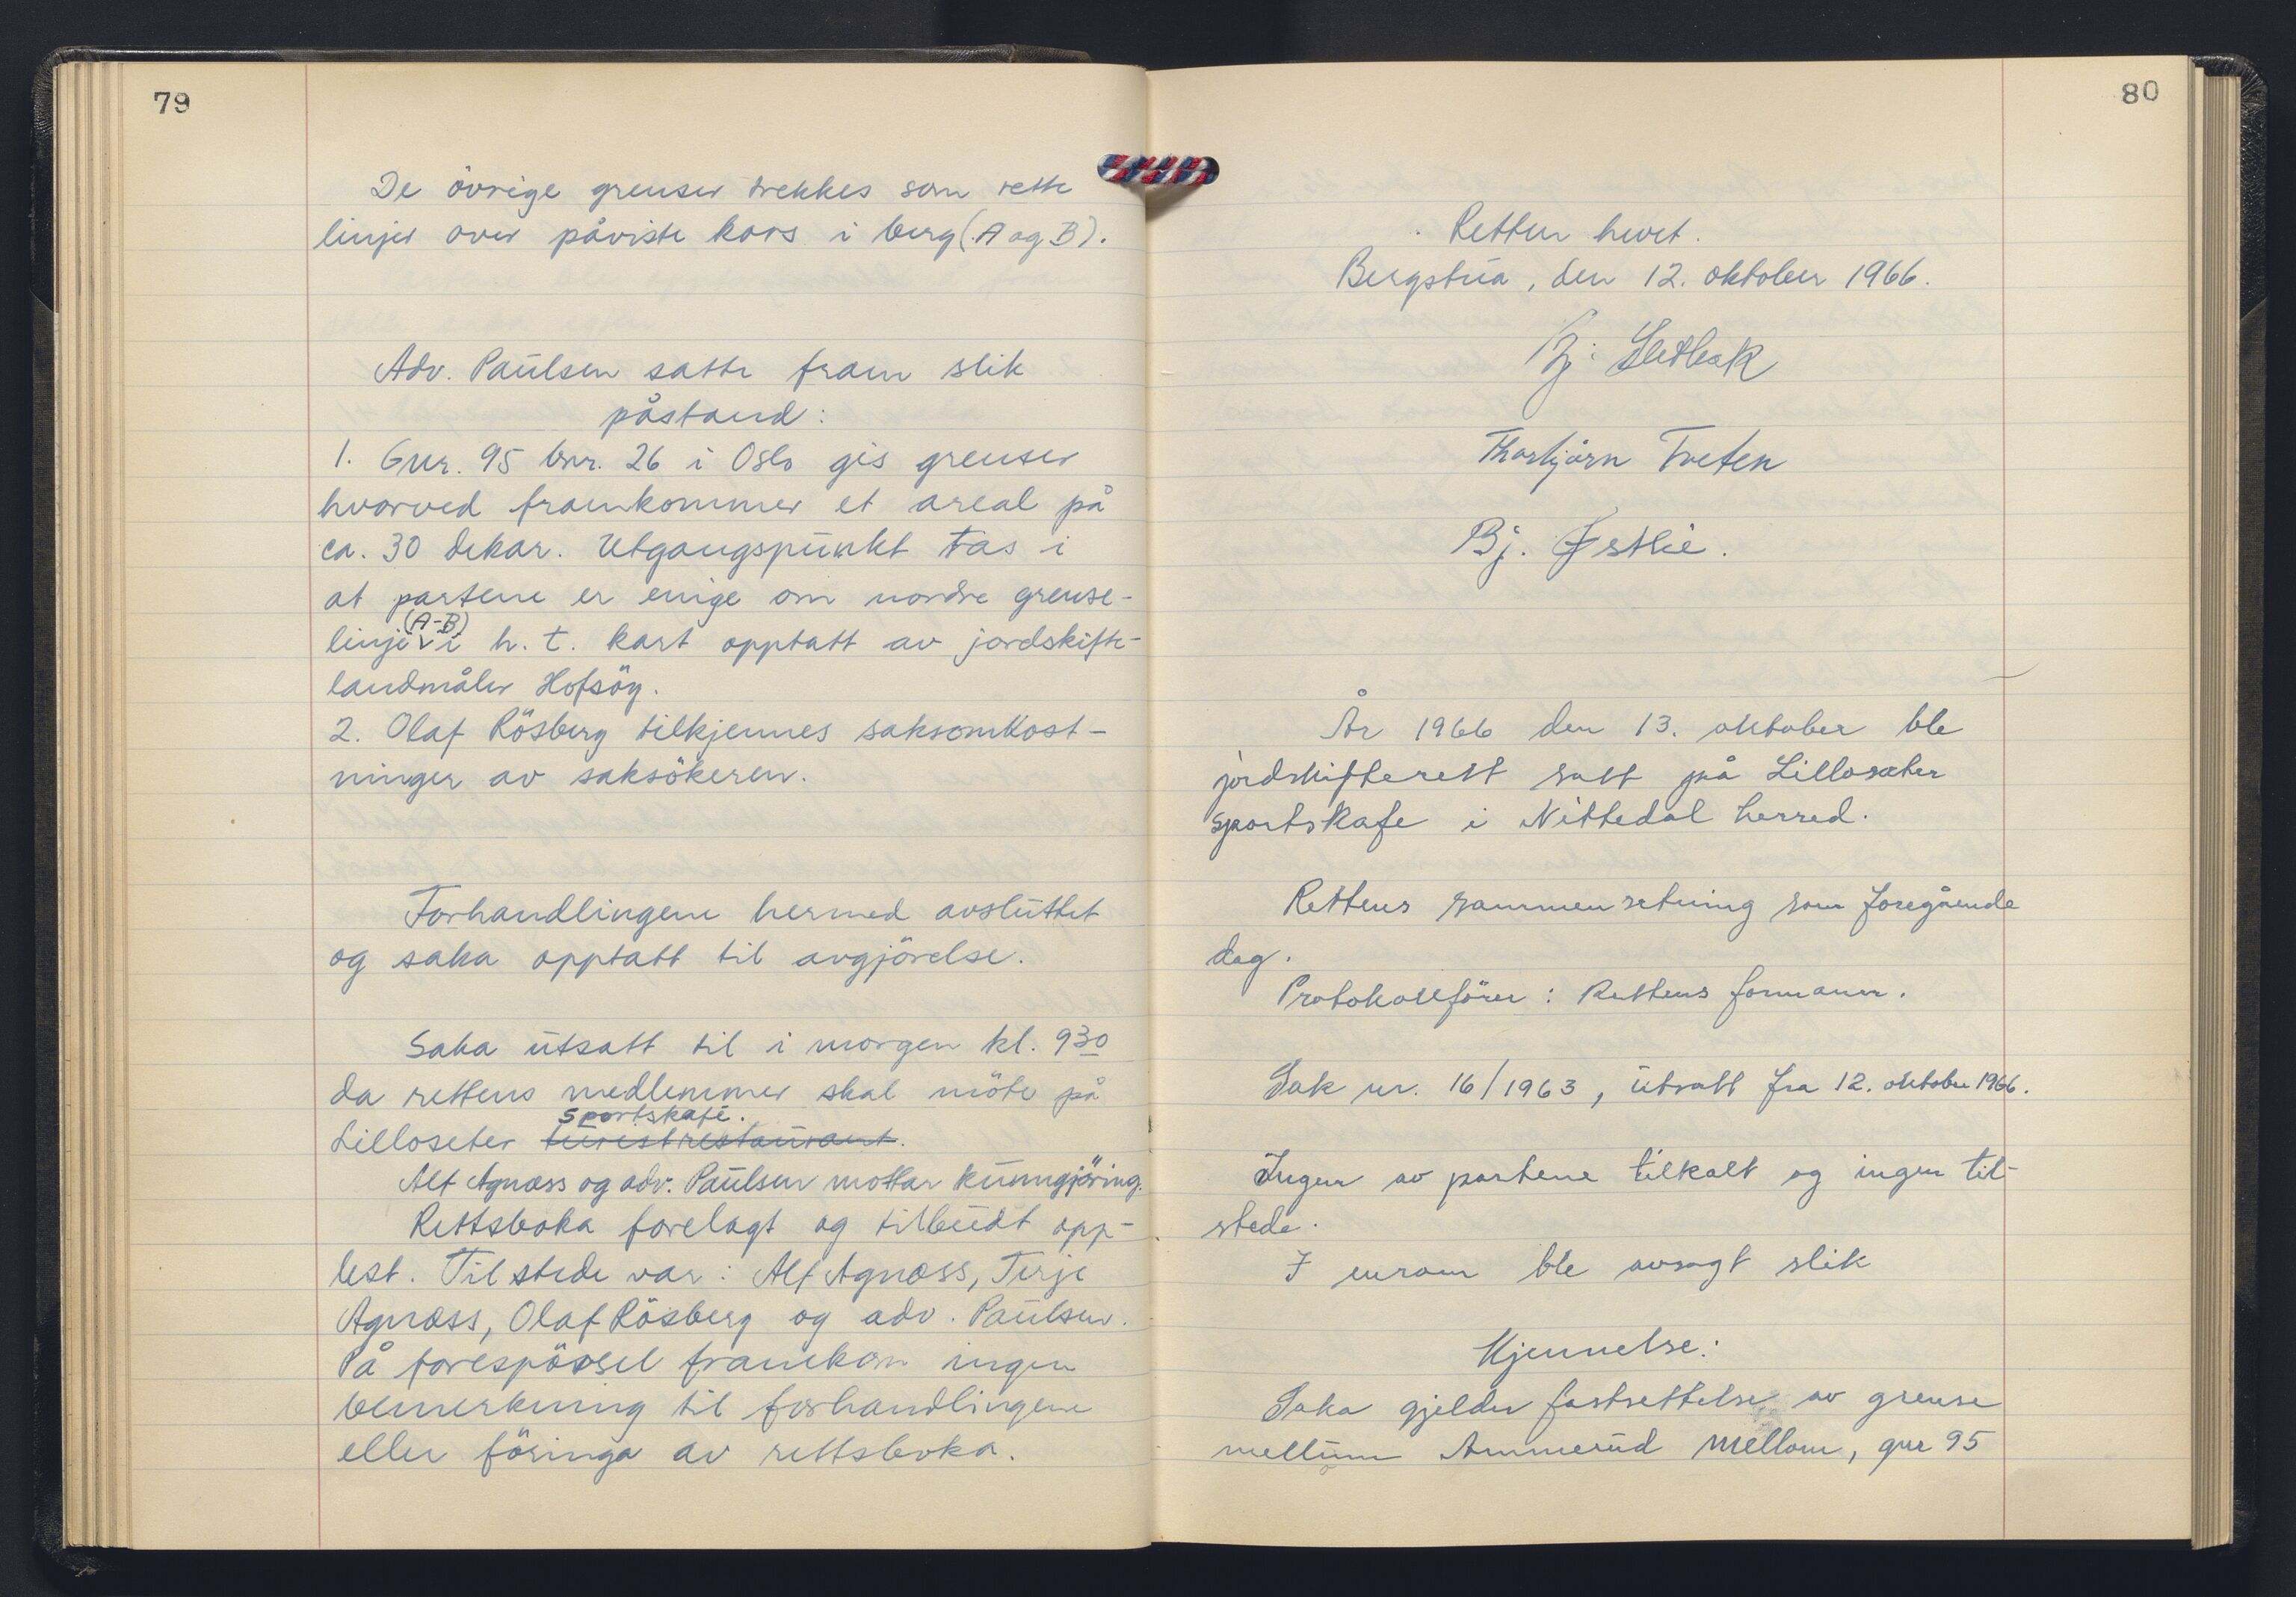 79
De övrige grenser trekkes som rette
linjer over påviste kors i berg (A og B).
Adv. Paulsen satte fram slik
påstand:
1. Gnr. 95 bnr. 26 i Oslo gis grenser
hvorved framkommer et areal på
ca. 30 dekar. Utgangspunkt tas i
at partene er enige om nordre grense-
(A-B)
linje i h. t. kart opptatt av jordskifte-
landmåler Hofsöy.
2. Olaf Rösberg tilkjennes saksomkost-
ninger av saksökeren.
Forhandlingene hermed avsluttet
og saka opptatt til avgjörelse.
Saka utsatt til i morgen kl. 930
da rettens medlemmer skal möte på
Sportskafé.
Lilloseter turistrestaurant.
Alf Agnæss og adv. Paulsen mottar kunngjöring.
Rettsboka forelagt og tilbudt opp-
lest. Til stede var: Alf Agnæss, Terje
Agnæss, Olaf Rösberg og adv. Paulsen.
På forespörsel framkom ingen
bemerkning til forhandlingene
eller föringa av rettsboka.
80
Retten hevet.
Bergstua, den 12. oktober 1966.
Thorbjørn Treten
Bj. Østlie.
År 1966 den 13. oktober ble
jordskifterett satt på Lillosæter
sportskafe i Nittedal herred.
Rettens sammensetning som foregående
dag.
Protokollförer: Rettens formann.
Sak nr. 16/1963, utsatt fra 12. oktober 1966.
Ingen av partene tilkalt og ingen til-
stede.
I enrom ble avsagt slik
Kjennelse:
Saka gjelder fastsettelse av grense
mellum Ammerud mellom, gnr 95